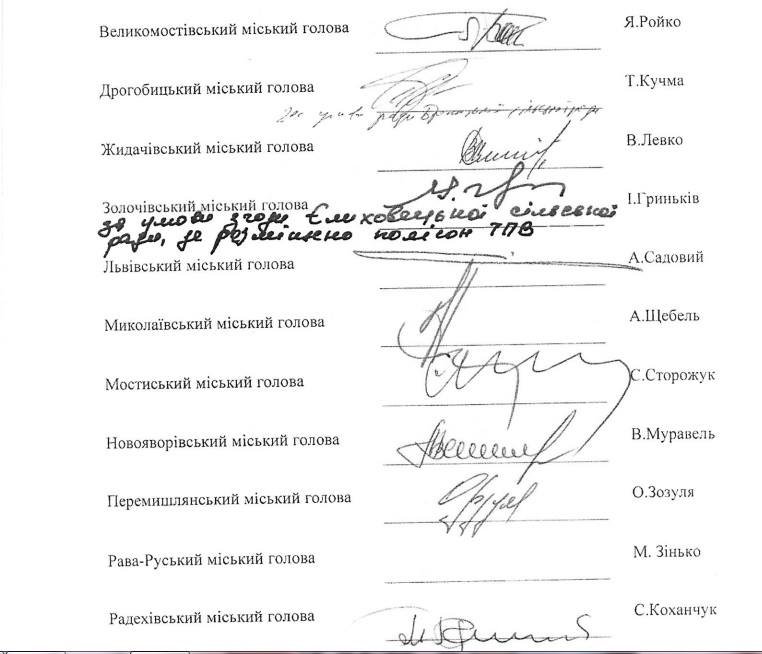 Великомостівський міський голова Я.Ройко
Дрогобицький міський голова Т.Кучма
Жидачівський міський голова В.Левко
Золочівський міський голова І.Гриньків
за умови згоди Єлиховецької сільської
ради, де розміщено полігон ТПВ
Львівський міський голова А.Садовий
Миколаївський міський голова А.Щебель
Мостиський міський голова С.Сторожук
Новояворівський міський голова В.Муравель
Перемишлянський міський голова О.Зозуля
Рава-Руський міський голова М. Зінько
Радехівський міський голова С.Коханчук